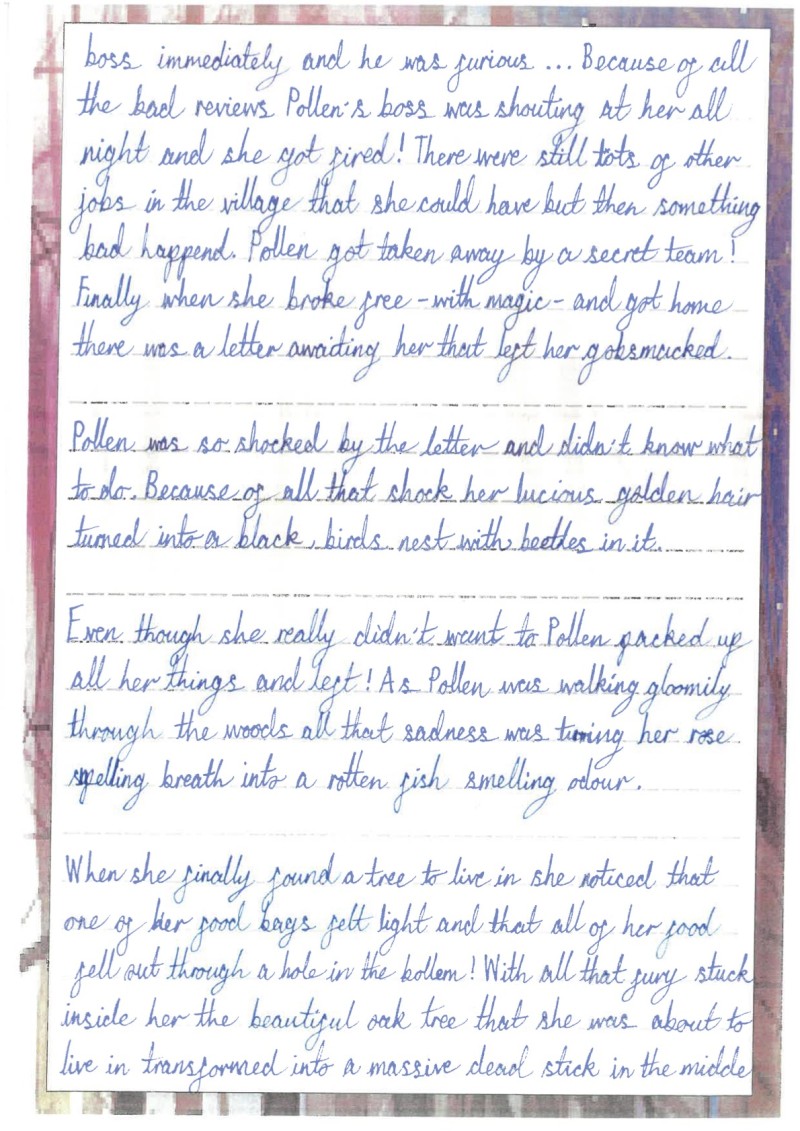 boss immediately and he was furious ... Because of all
the bad reviews Pollen's boss was shouting at her all
night and she got fired! There were still lots of other
jobs in the village that she could have but then something
bad happend. Pollen got taken away by a secret team!
Finally when she broke free - with magic - and got home
there was a letter awaiting her that left her gobsmacked.
Pollen was so shocked by the letter and didn't know what
to do. Because of all that shock her lucious golden hair
turned into a black, birds nest with beetles in it.
Even though she really didn't want to Pollen packed up
all her things and left! As Pollen was walking gloomily
through the woods all that sadness was turning her rose
smelling breath into a rotten fish smelling odour.
When she finally found a tree to live in she noticed that
one of her food bags felt light and that all of her food
fell out through a hole in the bottem! With all that fury stuck
inside her the beautiful oak tree that she was about to
live in transformed into a massive dead stick in the middle